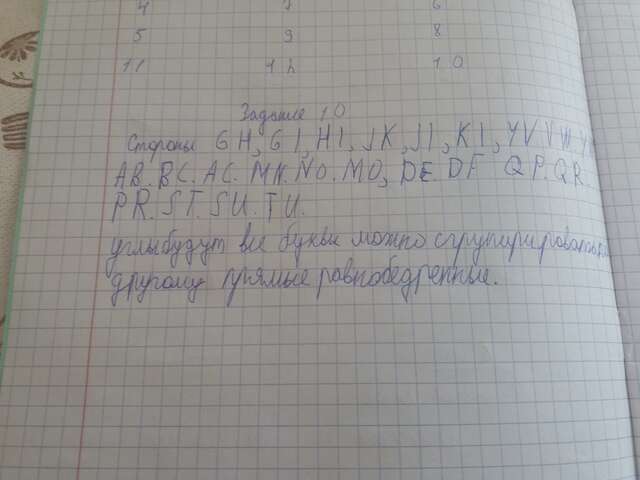 4 6
5 9 8
11 12 10
Задание 10
Стороны GH, GI, HI, JK, JI, KI, YV VW
AB. BC. AC. MN. NO. MO, DE. DF QP. QR.
PR. ST. SU. TU.
углы будут все буквы можно сгрупирировать по
другому прямые равнобедренные.